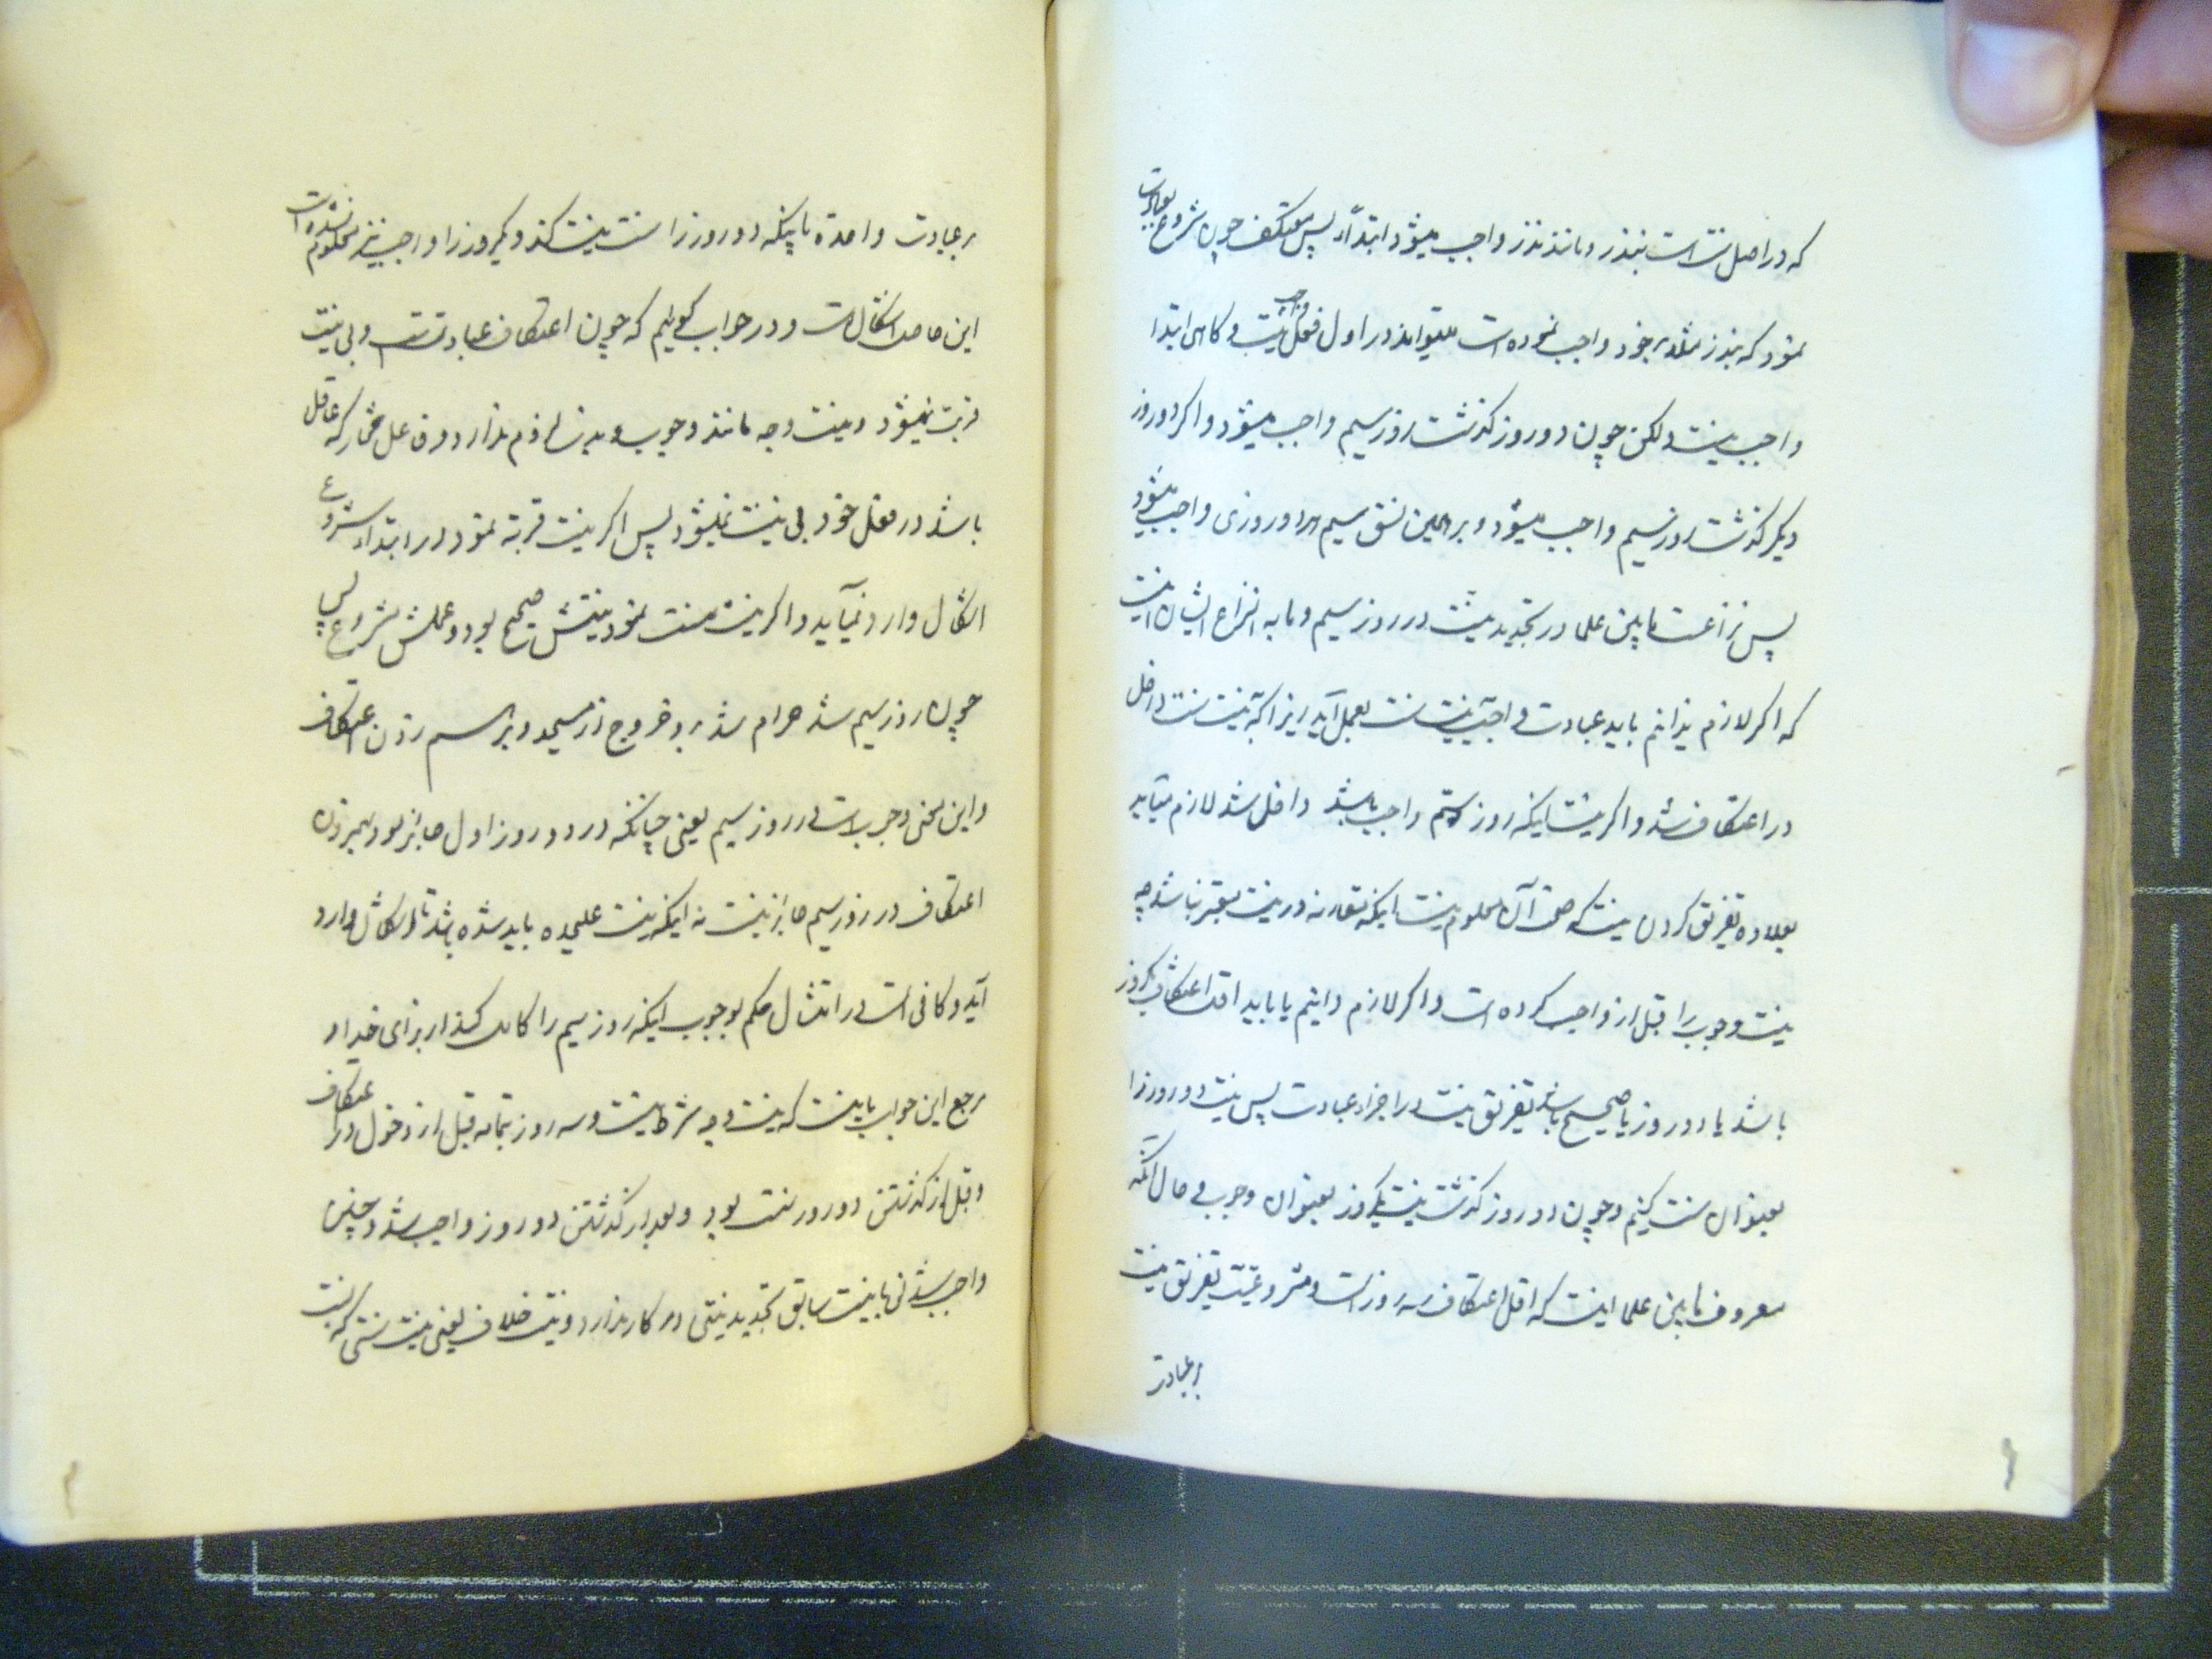 که در اصل سنت است بنذر و مانند نذر واجب میشود ابتداً پس معتکف چون شروع بعبادت
نمود که بنذر مثلا بر خود واجب نموده است میتواند در اول فعل نیت و کاهی ابتدا
واجب نیست ولکن چون دو روز کذشت روز سیم واجب میشود و اکر دو روز
دیکر کذشت روز سیم واجب میشود و بر همین نسق سیم هر دو روزی واجب میشود
پس نزاعست مابین علما در تجدید نیت در روز سیم و ما به النزاع ایشان اینست
که اکر لازم ندانیم باید عبادت واجب بنیت سنت بعمل آید زیرا که بنیت سنت داخل
در اعتکاف شد و اکر بنیت اینکه روز سیم واجب باشد داخل شد لازم میآید
بعلاوه تفریق کردن نیت که صحت آن معلوم نیست اینکه مقارنه در نیت معتبر نباشد چه
نیت وجوب را قبل از واجب کرده است و اکر لازم دانیم یا باید اقل اعتکاف یکروز
باشد یا دو روز یا صحیح باشد تفریق نیت در اجزاء عبادت پس نیت دو روز را
بعنوان سنت کنیم و چون دو روز کذشت نیت یکروز بعنوان وجوب و حال آنکه
معروف مابین علما اینست که اقل اعتکاف سه روز است و مشروعیت تفریق نیت
بر عبادت
بر عبادت واحده باینکه دو روز را سنت نیت کند و یکروز را واجب نیز معلوم نشده است
این حاصل اشکال است و در جواب کوئیم که چون اعتکاف عبادتست و بی نیت
قربت نمیشود و نیت وجه مانند وجوب و ندب لزوم ندارد و فاعل مختار که عاقل
باشد در فعل خود بی نیت نمیشود پس اکر نیت قربة نمود در ابتداء شروع
اشکال وارد نمیآید و اکر نیت سنت نمود نیتش صحیح بود و عملش مشروع پس
چون روز سیم شد حرام شد بر او خروج از مسجد و بر هم زدن اعتکاف
و این معنی وجوبست در روز سیم یعنی چنانکه در دو روز اول جایز بود بهم زدن
اعتکاف در روز سیم جایز نیست نه اینکه نیت علیحده باید شده باشد تا اشکال وارد
آید و کافی است در امتثال حکم بوجوب اینکه روز سیم را کامل کند از برای خدا و
مرجع این جواب باینست که نیت وجه شرط نیست و سه روز بتمامه قبل از دخول در اعتکاف
و قبل از کذشتن دو روز سنت بود و بعد از کذشتن دو روز واجب شد و چنین
واجب شدنی با نیت سابق تجدید نیتی در کار ندارد و نیت خلاف یعنی نیت سنتی که بنسبت